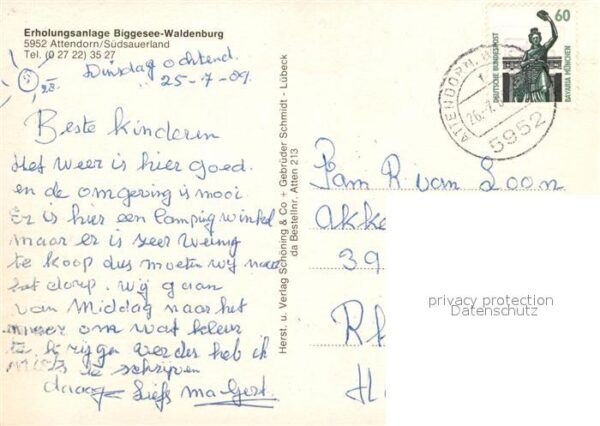 Erholungsanlage Biggesee-Waldenburg
5952 Attendorn/Südsauerland
Tel. (0 27 22) 35 27
Dinsdag ochtend.
25-7-89.
Beste kinderen
Het weer is hier goed.
en de omgeving is mooi
Er is hier een Camping winkel
maar er is zeer weinig
te koop dus moeten wij naar
het dorp. wij gaan
van Middag naar het
meer om wat kleur
te krijgen verder heb ik
niets te schrijven
daaag Liefs ma Gert.
Herst. u. Verlag Schöning & Co + Gebrüder Schmidt - Lübeck
da Bestellnr. Atten 213
60
DEUTSCHE BUNDESPOST
BAVARIA MÜNCHEN
ATTENDORN
26.7.
5952
Fam R van Loon
Akke
39
Rh
H
privacy protection
Datenschutz